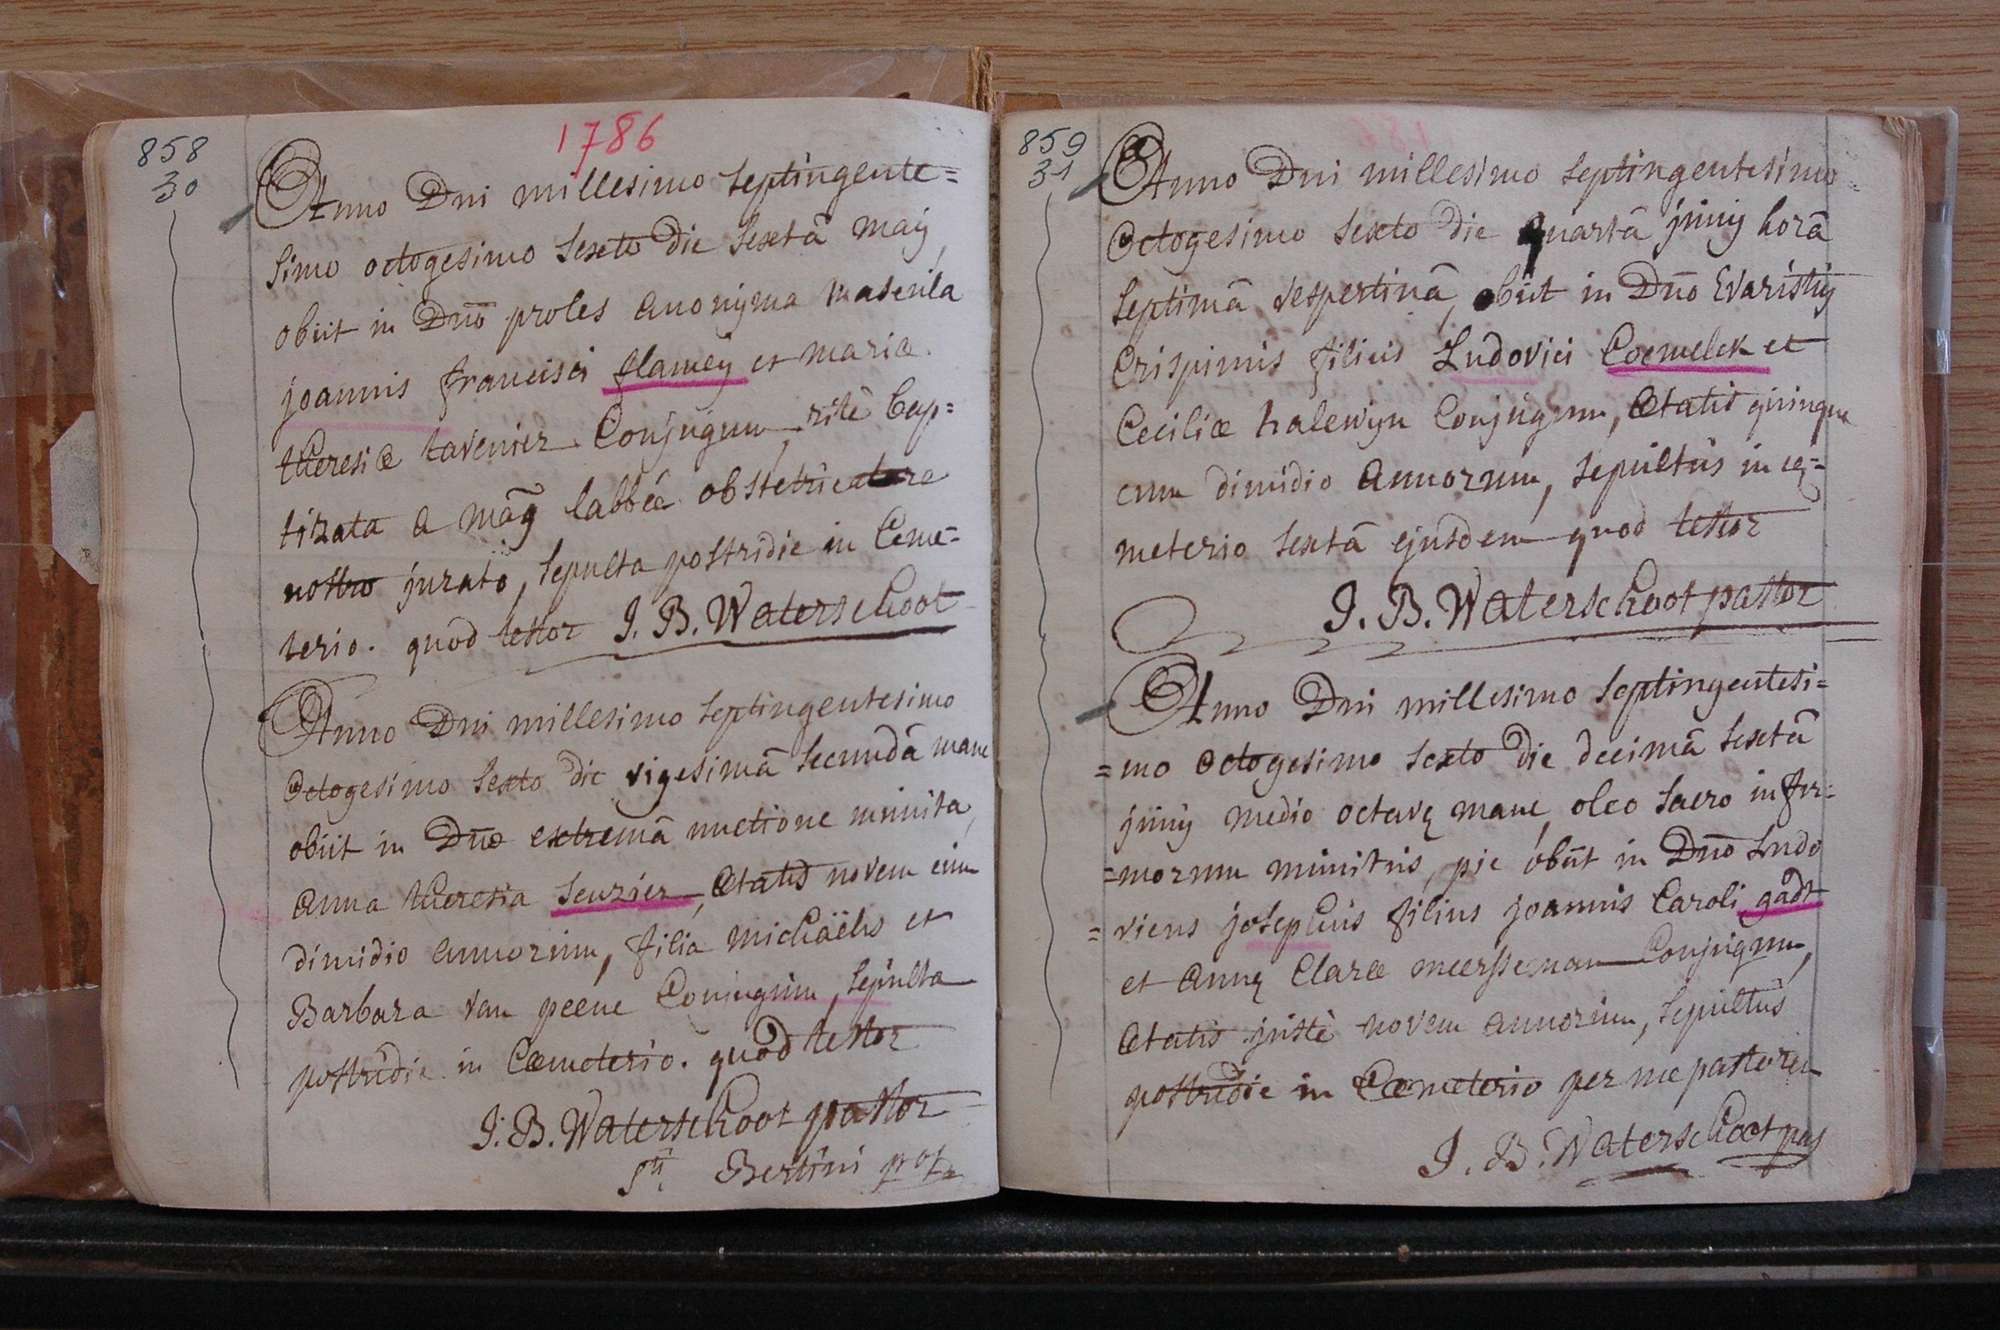 1786
858
30
Anno Dni millesimo septingente=
simo octogesimo sexto die sextâ maÿ
obiit in Dno proles anonyma mascula
joannis francisci flameÿ et mariæ
theresiæ tavenier Conjugum, ritè bap=
tizata a mag labbée obstetricatore
nostro jurato, sepulta postridie in Ceme=
terio. quod testor J. B. Waterschoot
Anno Dni millesimo septingentesimo
octogesimo sexto die vigesimâ secundâ mane
obiit in Dno extremâ unctione munita,
anna theresia seuzier, ætatis novem cum
dimidio annorum, filia michaëlis et
Barbara van peene Conjugum, sepulta
postridie in Cæmeterio. quod testor
J. B. Waterschoot pastor
Sti Bertini
859
31
Anno Dni millesimo septingentesimo
octogesimo sexto die quartâ junÿ horâ
septimâ vespertinâ, obiit in Dno Evaristus
Crispinus filius Ludovici Coemelck et
Ceciliæ halewyn Conjugum, ætatis quinque
cum dimidio annorum, sepultus in cę=
meterio sextâ ejusdem quod testor
J. B. Waterschoot pastor
Anno Dni millesimo septingentesi=
=mo octogesimo sexto die decimâ sextâ
junÿ medio octavę mane, oleo sacro infir=
=morum munitus, pie obiit in Dno Ludo
=vicus josephus filius joannis Caroli gadt
et annę Claræ meersseman Conjugum,
ætatis justè novem annorum, sepultus
postridie in Cæmeterio per me pastorem
J. B. Waterschoot pas